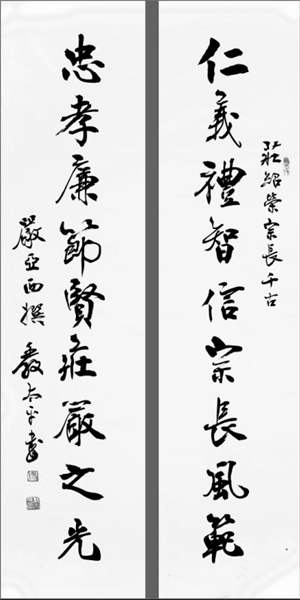 莊紹榮宗長千古
仁義禮智信宗長風範
忠孝廉節賢莊嚴之光
嚴亞西撰 嚴太平書